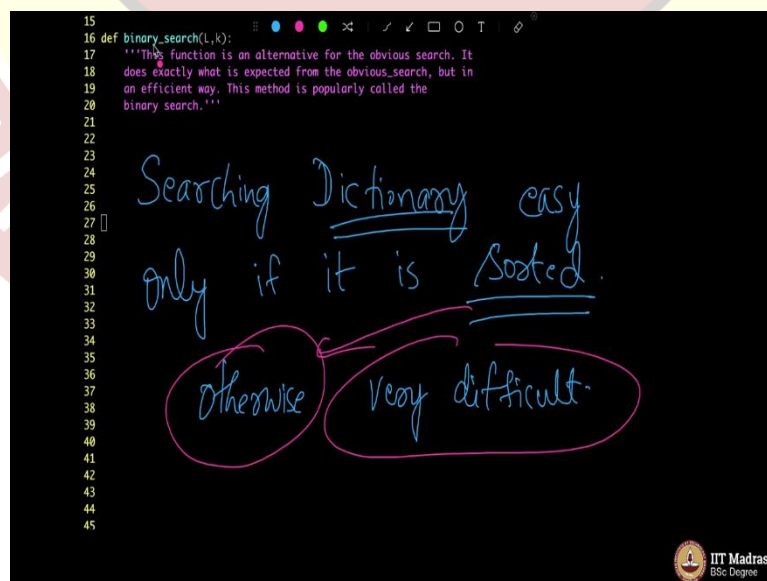 15
16 def binary_search(L,k):
17 '''This function is an alternative for the obvious search. It
18 does exactly what is expected from the obvious_search, but in
19 an efficient way. This method is popularly called the
20 binary search.'''
21
22
23
24
25
26
27
28
29
30
31
32
33
34
35
36
37
38
39
40
41
42
43
44
45
T
Searching Dictionary easy
only if it is Sorted.
otherwise very difficult.
IIT Madras
BSc Degree